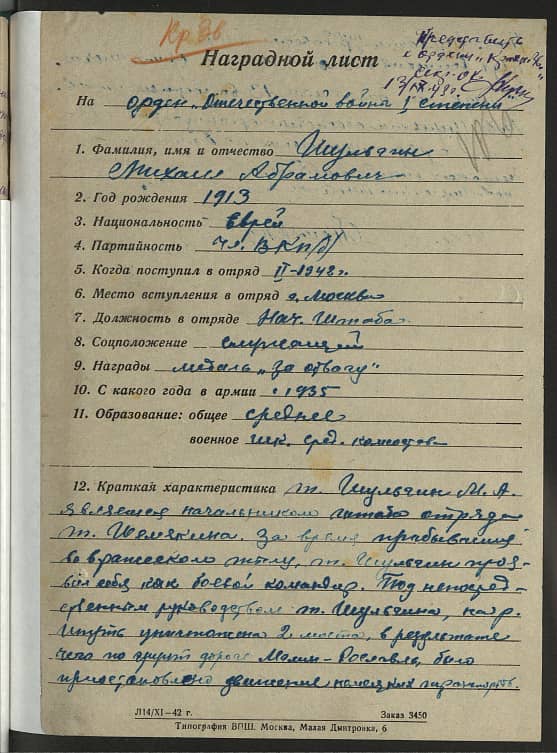 Кр Зв
Представить
к ордену „Кр. Зв."
Наградной лист
На орден „Отечественной войны I степени"
1. Фамилия, имя и отчество Шульчин
Михаил Абрамович
2. Год рождения 1913
3. Национальность Еврей
4. Партийность Чл. ВКП/б/
5. Когда поступил в отряд II-1942 г.
6. Место вступления в отряд г. Москва
7. Должность в отряде Нач. Штаба
8. Соцположение служащий
9. Награды медаль „За отвагу"
10. С какого года в армии с 1935
11. Образование: общее среднее
военное шк. сред. комсостава
12. Краткая характеристика т. Шульчин М. А.
является начальником штаба отряда
т. Шемякина. За время пребывания
во вражеском тылу, т. Шульчин проя-
вил себя как боевой командир. Под непосред-
ственным руководством т. Шульчина, на р.
Ипуть уничтожено 2 моста, в результате
чего по грунт дороге Мглин-Рославль, было
приостановлено движение немецких
Л14/XI—42 г. Заказ 3450
Типография ВПШ. Москва, Малая Дмитровка, 6